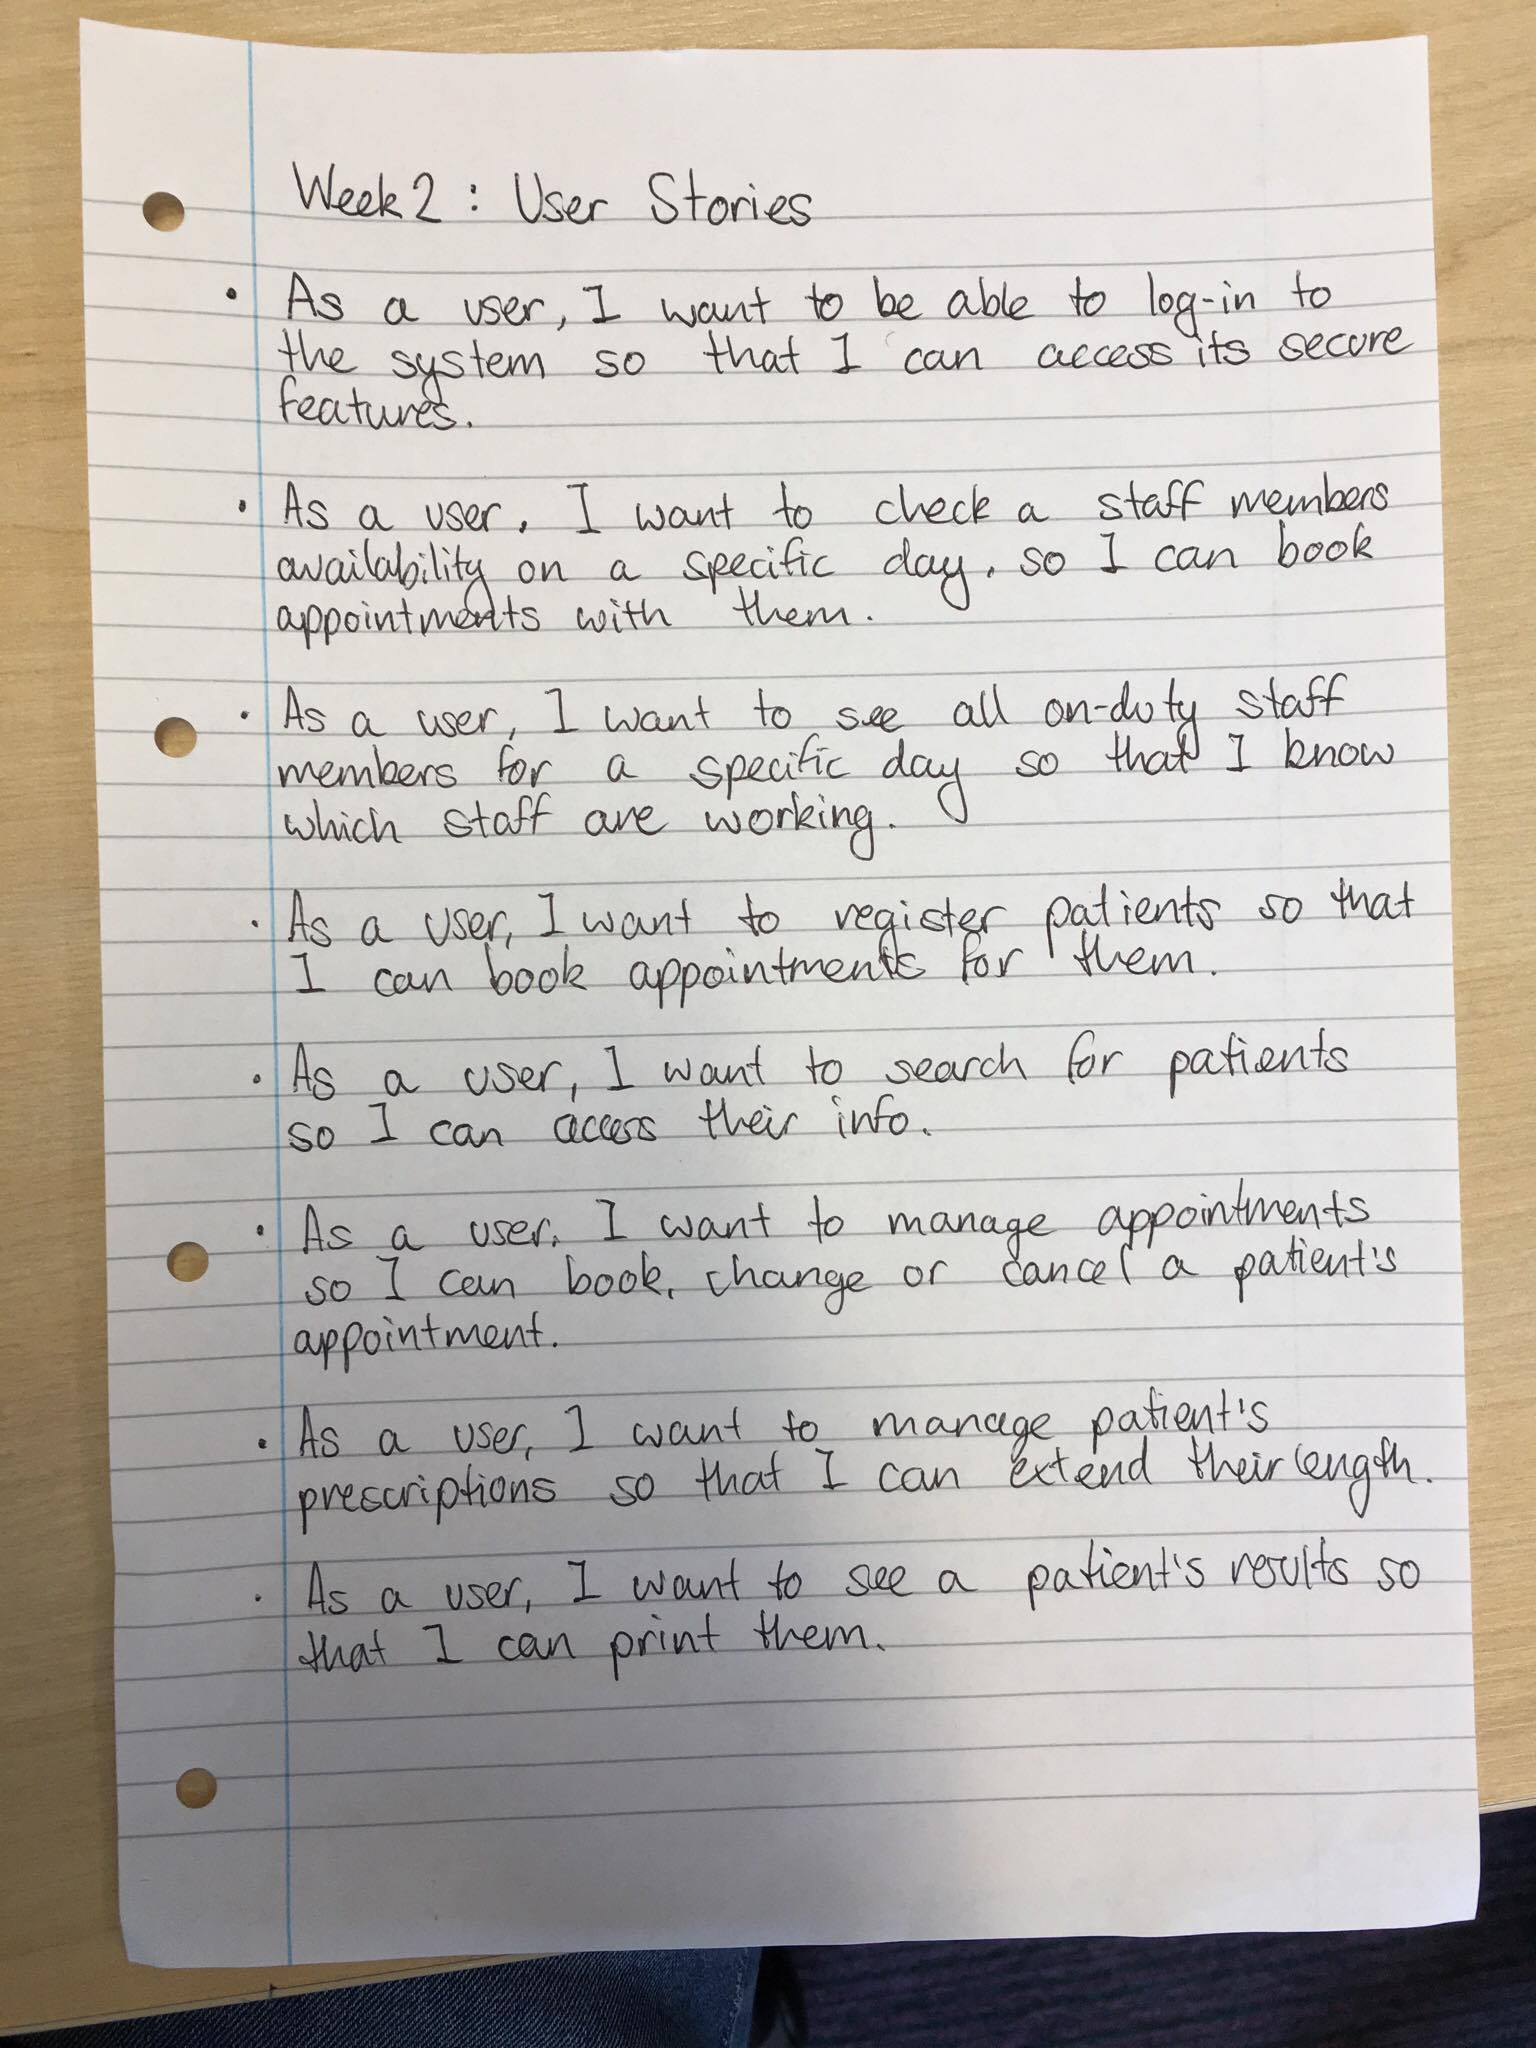 Week 2 : User Stories
• As a user, I want to be able to log-in to
the system so that I can access its secure
features.
• As a user, I want to check a staff members
availability on a specific day, so I can book
appointments with them.
• As a user, I want to see all on-duty staff
members for a specific day so that I know
which staff are working.
• As a user, I want to register patients so that
I can book appointments for them.
• As a user, I want to search for patients
so I can access their info.
• As a user, I want to manage appointments
so I can book, change or cancel a patient's
appointment.
• As a user, I want to manage patient's
prescriptions so that I can extend their length.
• As a user, I want to see a patient's results so
that I can print them.